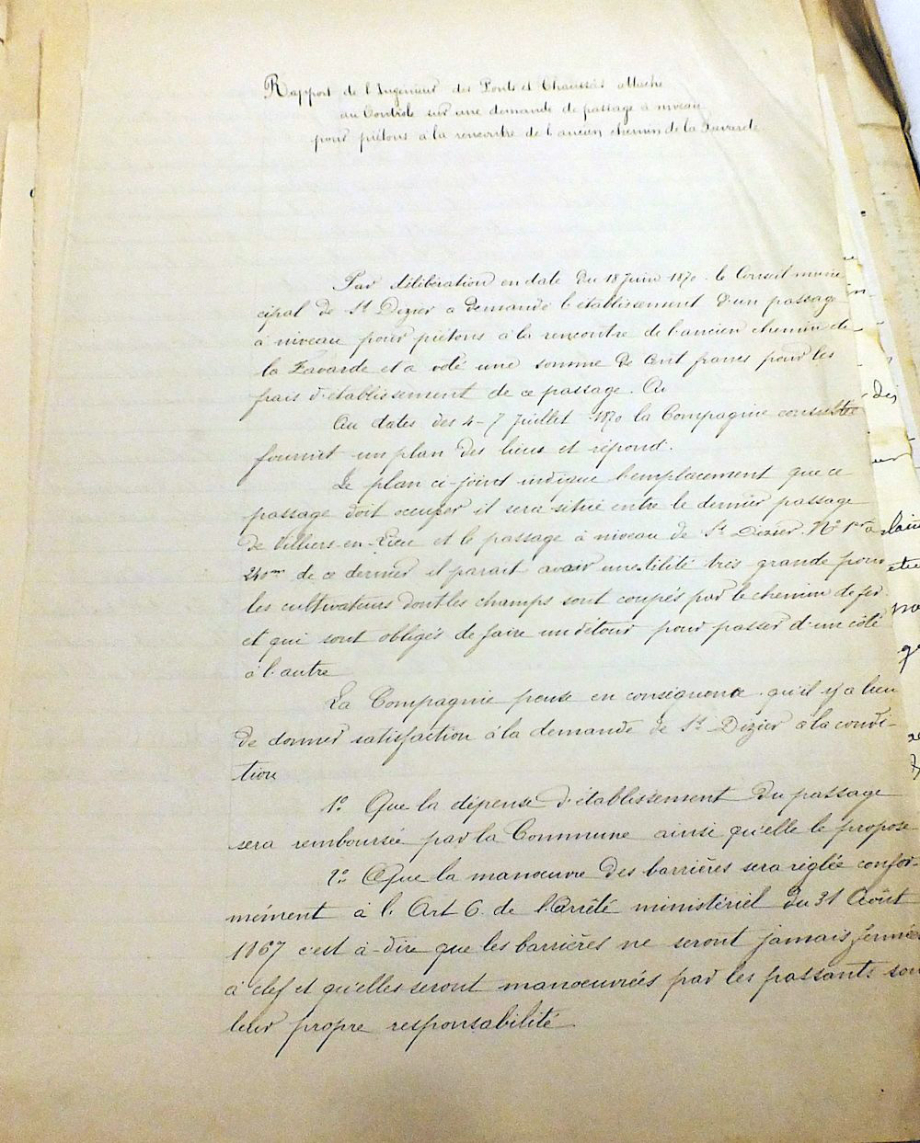 Rapport de l'Ingénieur des Ponts et Chaussées attaché
au Contrôle sur une demande de passage à niveau
pour piétons à la rencontre de l'ancien chemin de la
Par délibération en date du 18 Juin 1870 le Conseil muni
cipal de St Dizier a demandé l'établissement d'un passage
à niveau pour piétons à la rencontre de l'ancien chemin de
la et a voté une somme de Cent francs pour les
frais d'établissement de ce passage.
Au dates des 4-7 Juillet 1870 la Compagnie consultée
fournit un plan des lieux et répond.
Le plan ci-joint indique l'emplacement que ce
passage doit occuper il sera situé entre le dernier passage
de Villiers-en-Lieu et le passage à niveau de St Dizier. N° 1er à
240m de ce dernier il parait avoir une utilité très grande pour
les cultivateurs dont les champs sont coupés par le chemin de fer
et qui sont obligés de faire un détour pour passer d'un côté
à l'autre
La Compagnie pense en conséquence qu'il y a lieu
de donner satisfaction à la demande de St Dizier à la condi-
tion
1° Que la dépense d'établissement du passage
sera remboursée par la Commune ainsi qu'elle le propose
2° Que la manœuvre des barrières sera réglée confor-
mément à l'Art 6 de l'Arrêté ministériel du 31 Août
1867 c'est à-dire que les barrières ne seront jamais fermées
à clef et qu'elles seront manœuvrées par les passants sous
leur propre responsabilité.